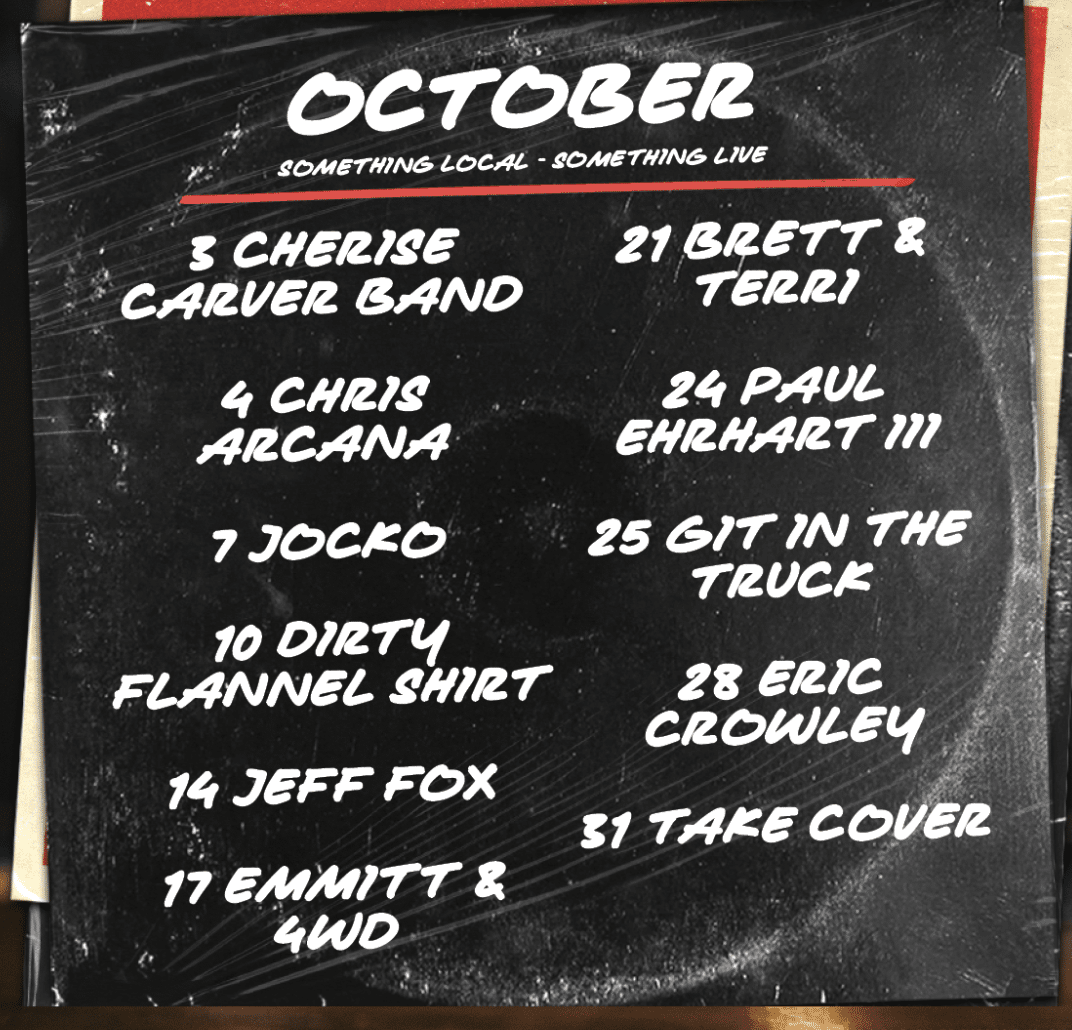 OCTOBER
SOMETHING LOCAL - SOMETHING LIVE
3 CHERISE
CARVER BAND
4 CHRIS
ARCANA
7 JOCKO
10 DIRTY
FLANNEL SHIRT
14 JEFF FOX
17 EMMITT &
4WD
21 BRETT &
TERRI
24 PAUL
EHRHART III
25 GIT IN THE
TRUCK
28 ERIC
CROWLEY
31 TAKE COVER